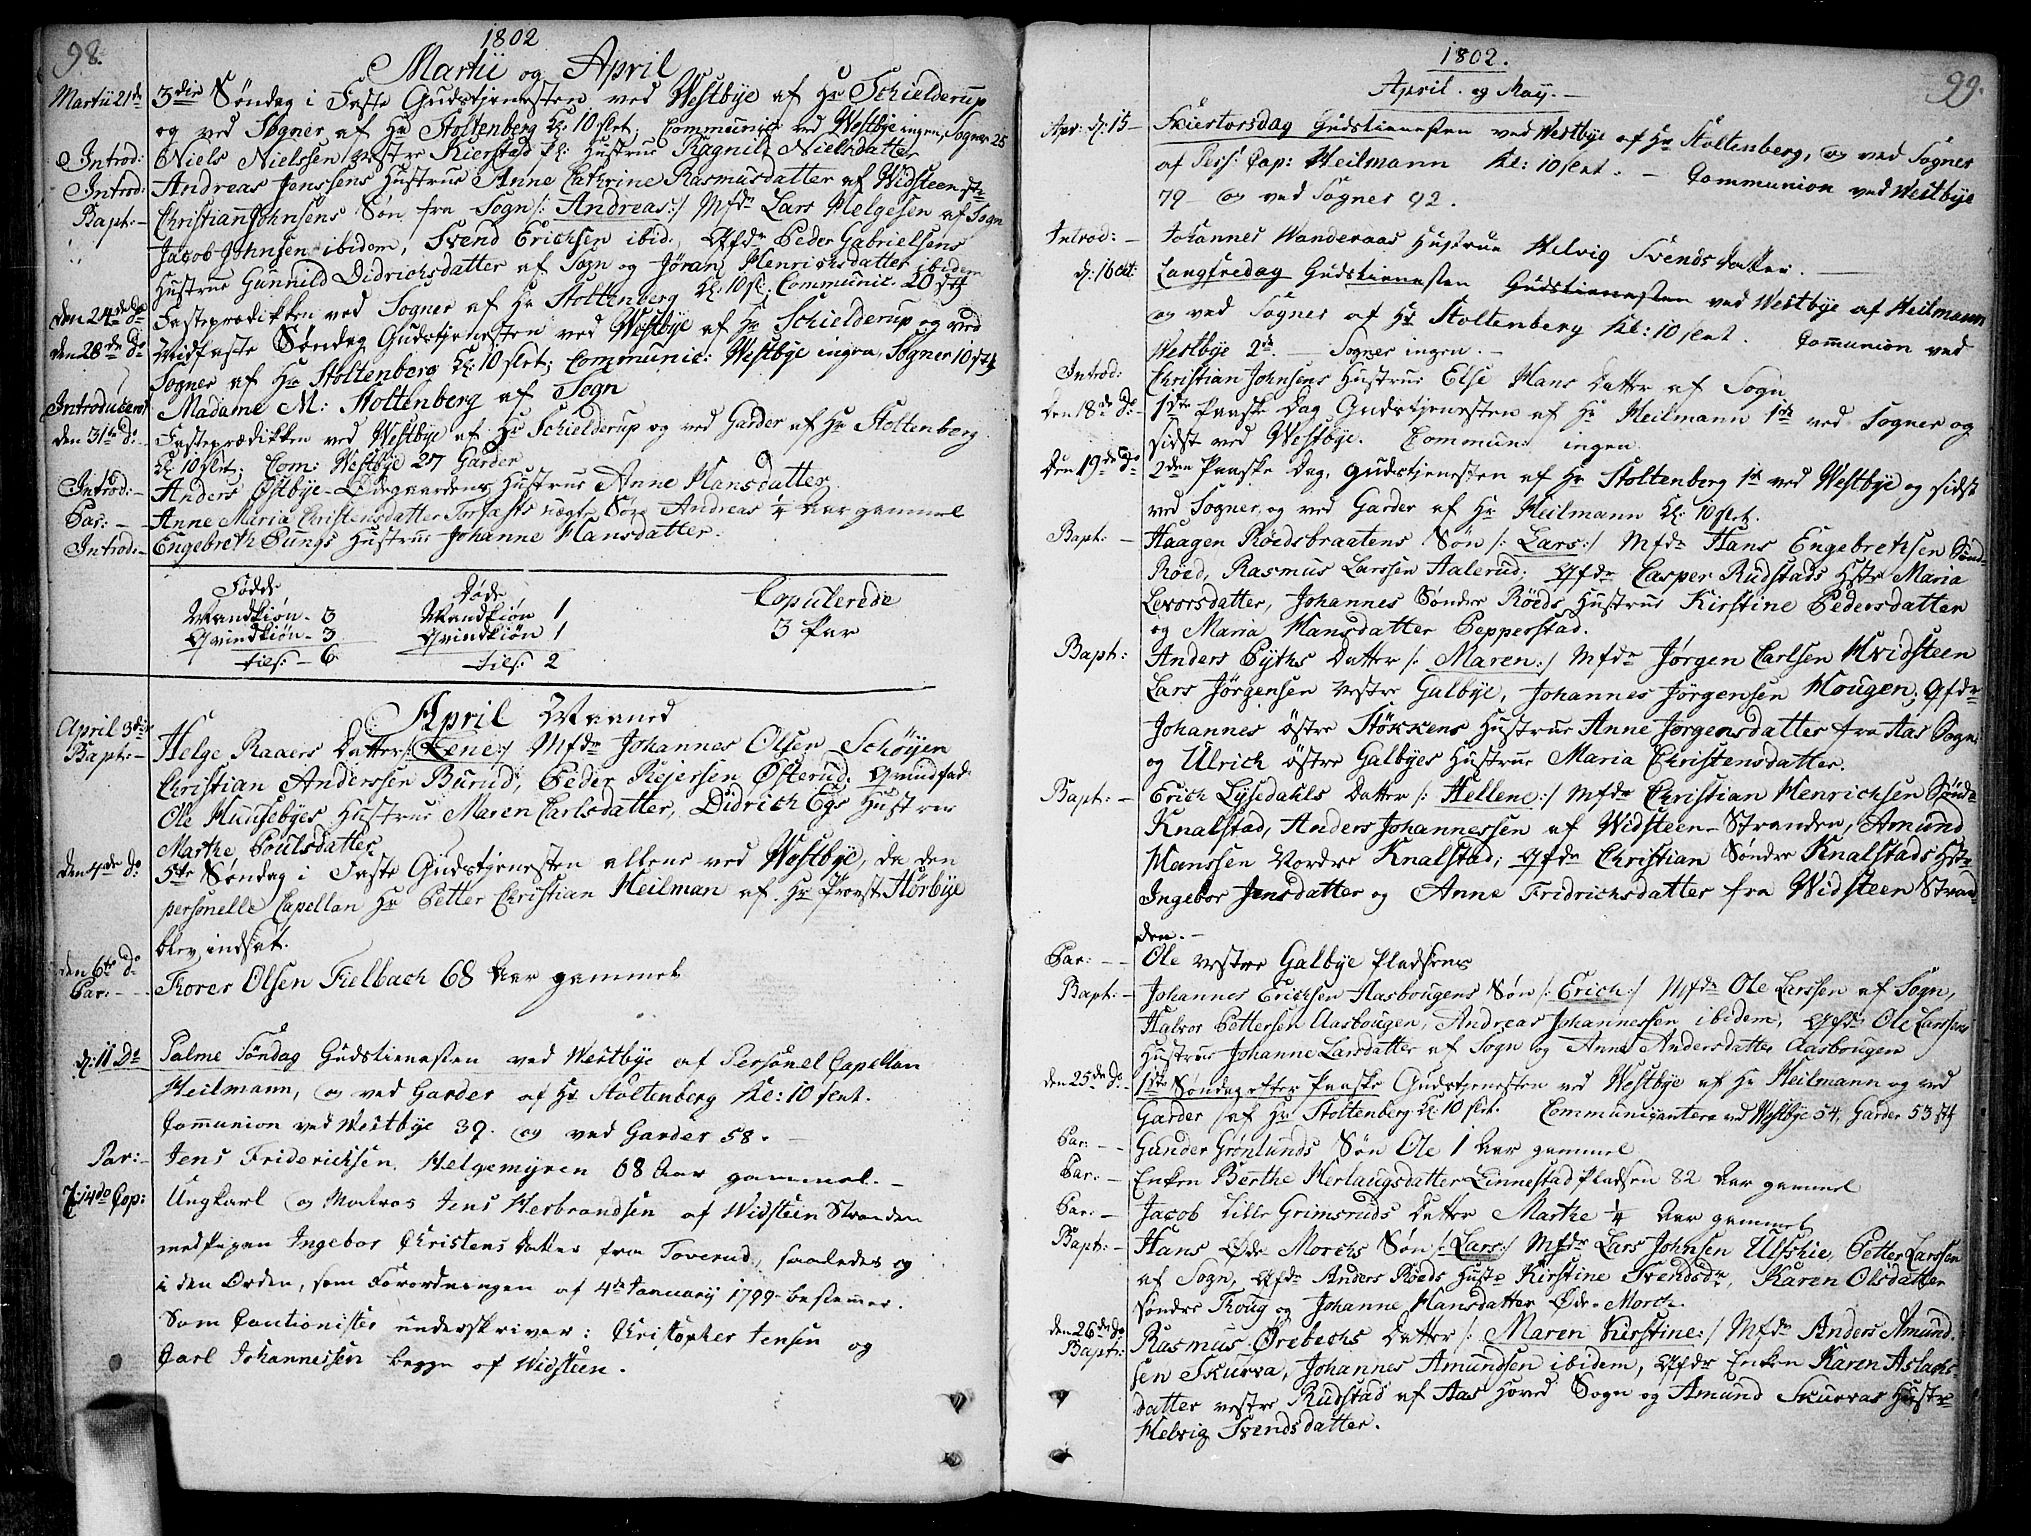 98.
1802
Martii og April
Martii 21de 3die Søndag i Faste Gudstjenesten ved Westbye af Hr Schielderup
og ved Sogner af Hr Stoltenberg Kl: 10 slet; Communic: ved Westbye ingen, Sogner 25
Introd: Niels Nielssen vestre Kierstad Pl: Hustrue Ragnild Nielsdatter
Introd: Andreas Jenssens Hustrue Anne Cathrine Rasmusdatter af Widsteen
Bapt: Christian Johnsens Søn fra Sogn /: Andreas :/ Mfdr Lars Helgesen af Sogn
Jacob Johnsen ibidem, Svend Erichsen ibid:, Qfdr Peder Gabrielsens
Hustrue Gunnild Didrichsdatter af Sogn og Jøran Henrichsdatter ibidem
den 24de do Fasteprædikken ved Sogner af Hr Stoltenberg Kl: 10 sl: Communic: 20
den 28de do Midfaste Søndag Gudstjenesten ved Westbye af Hr Schielderup og ved
Sogner af Hr Stoltenberg Kl: 10 slet; Communic: Westbye ingen, Sogner 10
Introduceret Madame M: Stoltenberg af Sogn
den 31te do Fasteprædikken ved Westbye af Hr Schielderup og ved Garder af Hr Stoltenberg
Kl: 10 slet; Com: Westbye 27 Garder
Introd: Anders Østbye-Ødegaardens Hustrue Anne Hansdatter
Par: Anne Maria Christensdatter Søn Andreas 1/4 Aar gammel
Introd: Engebreth Pungs Hustrue Johanne Hansdatter.
Fødde Døde Copulerede
Mandkiøn - 3 Mandkiøn 1 3 Par
Qvindkiøn - 3 Qvindkiøn 1
tils: - 6 tils: 2
April Maaned
April 3die
Bapt: Helge Raaers Datter /: Lene :/ Mfdr Johannes Olsen Schøyen
Christian Anderssen Burud, Peder Rejersen Østerud. Qvindfad:
Ole Huusebyes Hustrue Maren Carlsdatter, Didrich Egs Hustrue
Marthe Poulsdatter
den 4de do 5te Søndag i Faste Gudstjenesten allene ved Westbye, da den
personelle Capellan Hr Petter Christian Heilman af Hr Provst Hørbye
blev indsat.
den 6te do
Par: Torer Olsen Fielbach 68 Aar gammel
d: 11 Do Palme Søndag Gudstienesten ved Westbye af Personel Capellan
Heilmann, og ved Garder af Hr Stoltenberg Kl: 10 slet.
Communion ved Westbye 37. og ved Garder 58.
Par: Jens Fridericksen Helgemyren 68 Aar gammel.
14do Cop: Ungkarl og Matros Jens Herbrandsen af Widsteen Stranden
med Pigen Ingebor Christens Datter fra Toverud, saaledes og
i den Orden, som Forordningen af 4de January 1799 bestemmer.
Som Cautionister underskriver: Christopher Jensen og
Carl Johannessen begge af Widsteen.
99.
1802.
April og May.
Apr: d: 15 Skiertorsdag Gudstienesten ved Westbye af Hr Stoltenberg, og ved Sogner
af Pers: Cap: Heilmann Kl: 10 slet. - Communion ved Westbye
79 - og ved Sogner 92.
Introd: Johannes Wanderaas Hustrue Helvig Svends Datter.
d: 16de Langfredag Gudstienesten Gudstienesten ved Westbye af Heilmann
og ved Sogner af Hr Stoltenberg Kl: 10 slet. Communion ved
Westbye 2de. - Sogner ingen. -
Introd: Christian Johnsens Hustrue Else Hans Datter af Sogn
den 18de do 1ste Paaske Dag Gudstjenesten af Hr Heilmann 1st ved Sogner og
sidst ved Westbye. Commun: ingen
den 19de do 2den Paaske Dag, Gudstjenesten af Hr Stoltenberg 1st ved Westbye og sidst
ved Sogner, og ved Garder af Hr Heilmann Kl: 10 slet.
Bapt: Haagen Røedsbraatens Søn /: Lars :/ Mfdr Hans Engebrethsen Sønd:
Røed, Rasmus Larssen Aalerud; Qfdr Casper Rudstads Hstr Maria
Levorsdatter, Johannes Søndre Røeds Hustrue Kirstine Pedersdatter
og Maria Hansdatter Pepperstad.
Bapt: Anders Pyths Datter /: Maren :/ Mfdr Jørgen Carlsen Hvidsteen
Lars Jørgensen vestre Galbye, Johannes Jørgensen Hougen, Qfdr
Johannes østre Støkkens Hustrue Anne Jørgensdatter fra Aas Sogn
og Ulrich østre Galbyes Hustrue Maria Christensdatter.
Bapt: Erich Lysedahls Datter /: Hellene :/ Mfdr Christian Henrichsen Sønd:
Knalstad, Anders Johannessen af Widsteen-Stranden, Amund
Hanssen Nordre Knalstad; Qfdr Christian Søndre Knalstads Hstr
Ingebor Jensdatter og Anne Fridrichsdatter fra Widsteen Stran
den. -
Par: Ole vestre Galbye Pladsens
Bapt: Johannes Erichsen Aasbougens Søn /: Erich :/ Mfdr Ole Larssen af Sogn,
Halvor Pettersen Aasbougen, Andreas Johannessen ibidem, Qfdr Ole Larssens
Hustrue Johanne Larsdatter af Sogn og Anne Andersdatter Aasbougen
den 25de do 1ste Søndag efter Paaske Gudstjenesten ved Westbye af Hr Heilmann og ved
Garder af Hr Stoltenberg Kl: 10 slet. Communicantere ved Westbye 54, Garder 53
Par: Gunder Grønlunds Søn Ole 1 Aar gammel
Par: Enken Berthe Herlaugsdatter Linnestad Pladsen 82 Aar gammel
Par: Jacob Lille Grimsruds Datter Marthe 1/4 Aar gammel
Bapt: Hans Øde Morchs Søn /: Lars :/ Mfdr Lars Johnsen Ulfskie, Petter Larssen
af Sogn, Qfdr Anders Røeds Hustr Kirstine Svendsdr, Karen Olsdatter
søndre Toug og Johanne Hansdatter Øde-Morch.
den 26de do
Bapt: Rasmus Ørebechs Datter /: Maren Kirstine :/ Mfdr Anders Amund
sen Skurva, Johannes Amundsen ibidem, Qfdr Enken Karen Aslachs
datter vestre Rudstad af Aas Hoved Sogn og Amund Skurvas Hustr
Helvig Svendsdatter.